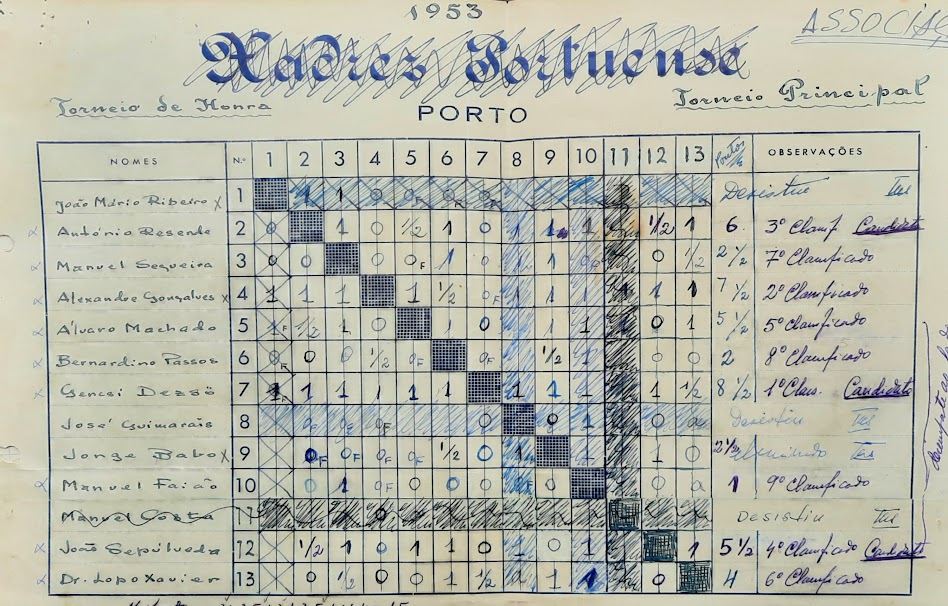 1953
ASSOCIAÇ
Xadrez Portuense
Torneio de Honra
PORTO
Torneio Principal
NOMES N.º 1 2 3 4 5 6 7 8 9 10 11 12 13 Pontos OBSERVAÇÕES
João Mário Ribeiro x 1 1 1 0 0 0 0 Desistiu
António Resende 2 0 1 0 1/2 1 0 1 1 1 1/2 1 6 3º Classif Candidato
Manuel Sequeira 3 0 0 0 0F 1 0 1 1 0F 0 1/2 2 1/2 7º Classificado
Alexandre Gonçalves x 4 1 1 1 1 1/2 0F 1 1 1 1 1 7 1/2 2º Classificado
Álvaro Machado 5 1F 1/2 1 0 1 0 1 1 1 0 1 5 1/2 5º Classificado
Bernardino Passos 6 0F 0 0 1/2 0F 0F 1/2 1 0 0 2 8º Classificado
Genesi Dezsö 7 1F 1 1 1 1 1 1 1 1 1 1/2 8 1/2 1º Class. Candidato
José Guimarais 8 0 1 0 0 Desistiu
Jorge Babo x 9 0F 0F 0F 0F 1/2 0 1 1 0 2 1/2 eliminado
Manuel Faião 10 0 1 0F 0 0 0 0F 0 0 1 9º Classificado
Manuel Costa 11 Desistiu
João Sepúlveda 12 1/2 1 0 1 1 0 1 0 1 1 5 1/2 4º Classificado Candidato
Dr. Lopo Xavier 13 0 1/2 0 0 1 1/2 1 1 0 4 6º Classificado